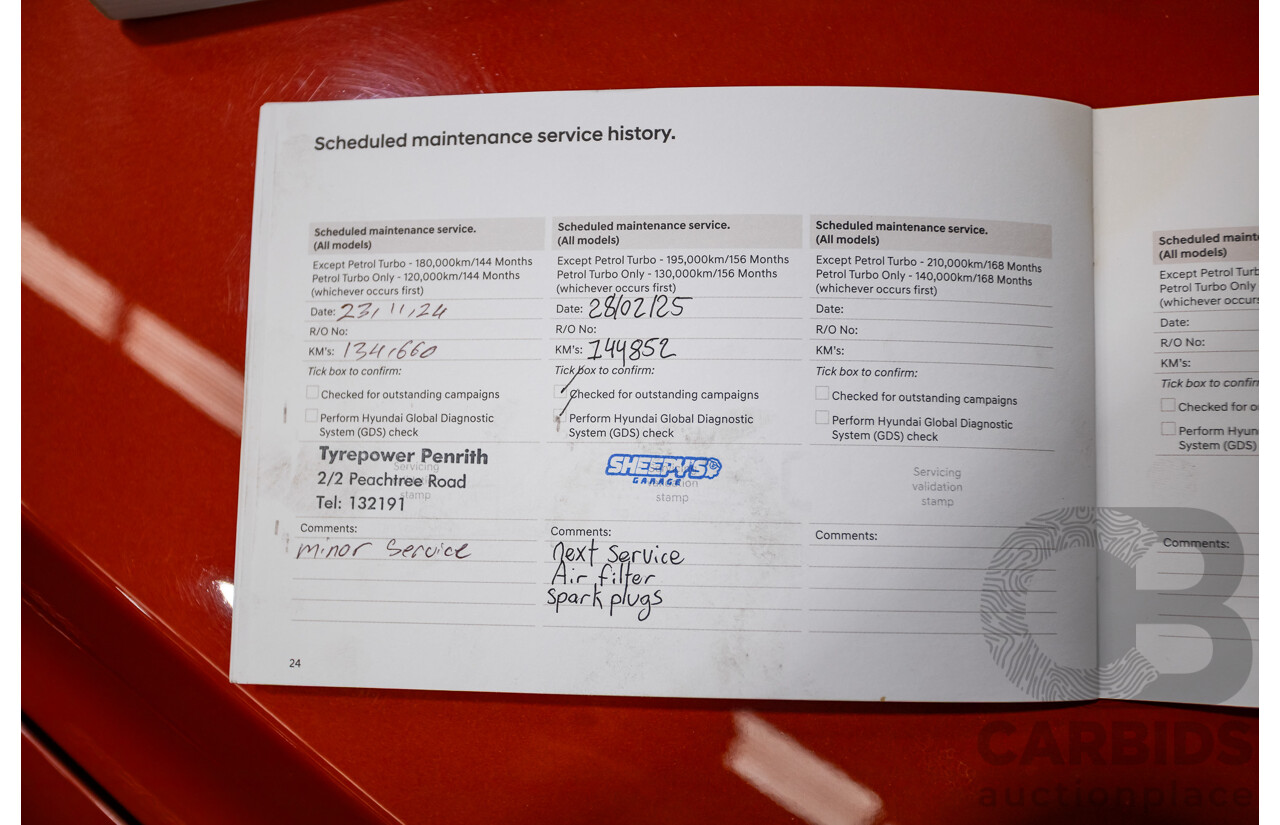 Scheduled maintenance service history.
Scheduled maintenance service.
(All models)
Except Petrol Turbo - 180,000km/144 Months
Petrol Turbo Only - 120,000km/144 Months
(whichever occurs first)
Date: 23,11,24
R/O No:
KM's: 134,660
Tick box to confirm:
Checked for outstanding campaigns
Perform Hyundai Global Diagnostic
System (GDS) check
Tyrepower Penrith
Servicing
2/2 Peachtree Road
stamp
Tel: 132191
Comments:
minor Service
Scheduled maintenance service.
(All models)
Except Petrol Turbo - 195,000km/156 Months
Petrol Turbo Only - 130,000km/156 Months
(whichever occurs first)
Date: 28/02/25
R/O No:
KM's: 144852
Tick box to confirm:
Checked for outstanding campaigns
Perform Hyundai Global Diagnostic
System (GDS) check
SHEEPY'S
GARAGE
stamp
Comments:
Next Service
Air filter
spark plugs
Scheduled maintenance service.
(All models)
Except Petrol Turbo - 210,000km/168 Months
Petrol Turbo Only - 140,000km/168 Months
(whichever occurs first)
Date:
R/O No:
KM's:
Tick box to confirm:
Checked for outstanding campaigns
Perform Hyundai Global Diagnostic
System (GDS) check
Servicing
validation
stamp
Comments:
24
Scheduled maint
(All models)
Except Petrol Turb
Petrol Turbo Only
(whichever occurs
Date:
R/O No:
KM's:
Tick box to confir
Checked for o
Perform Hyun
System (GDS)
Comments:
CB
CARBIDS
auctionplace